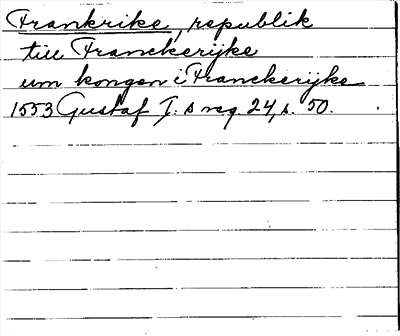 Frankrike, republik
till Franckerijke
um kongen i Franckerijke
1553 Gustaf I:s reg. 24, s. 50.